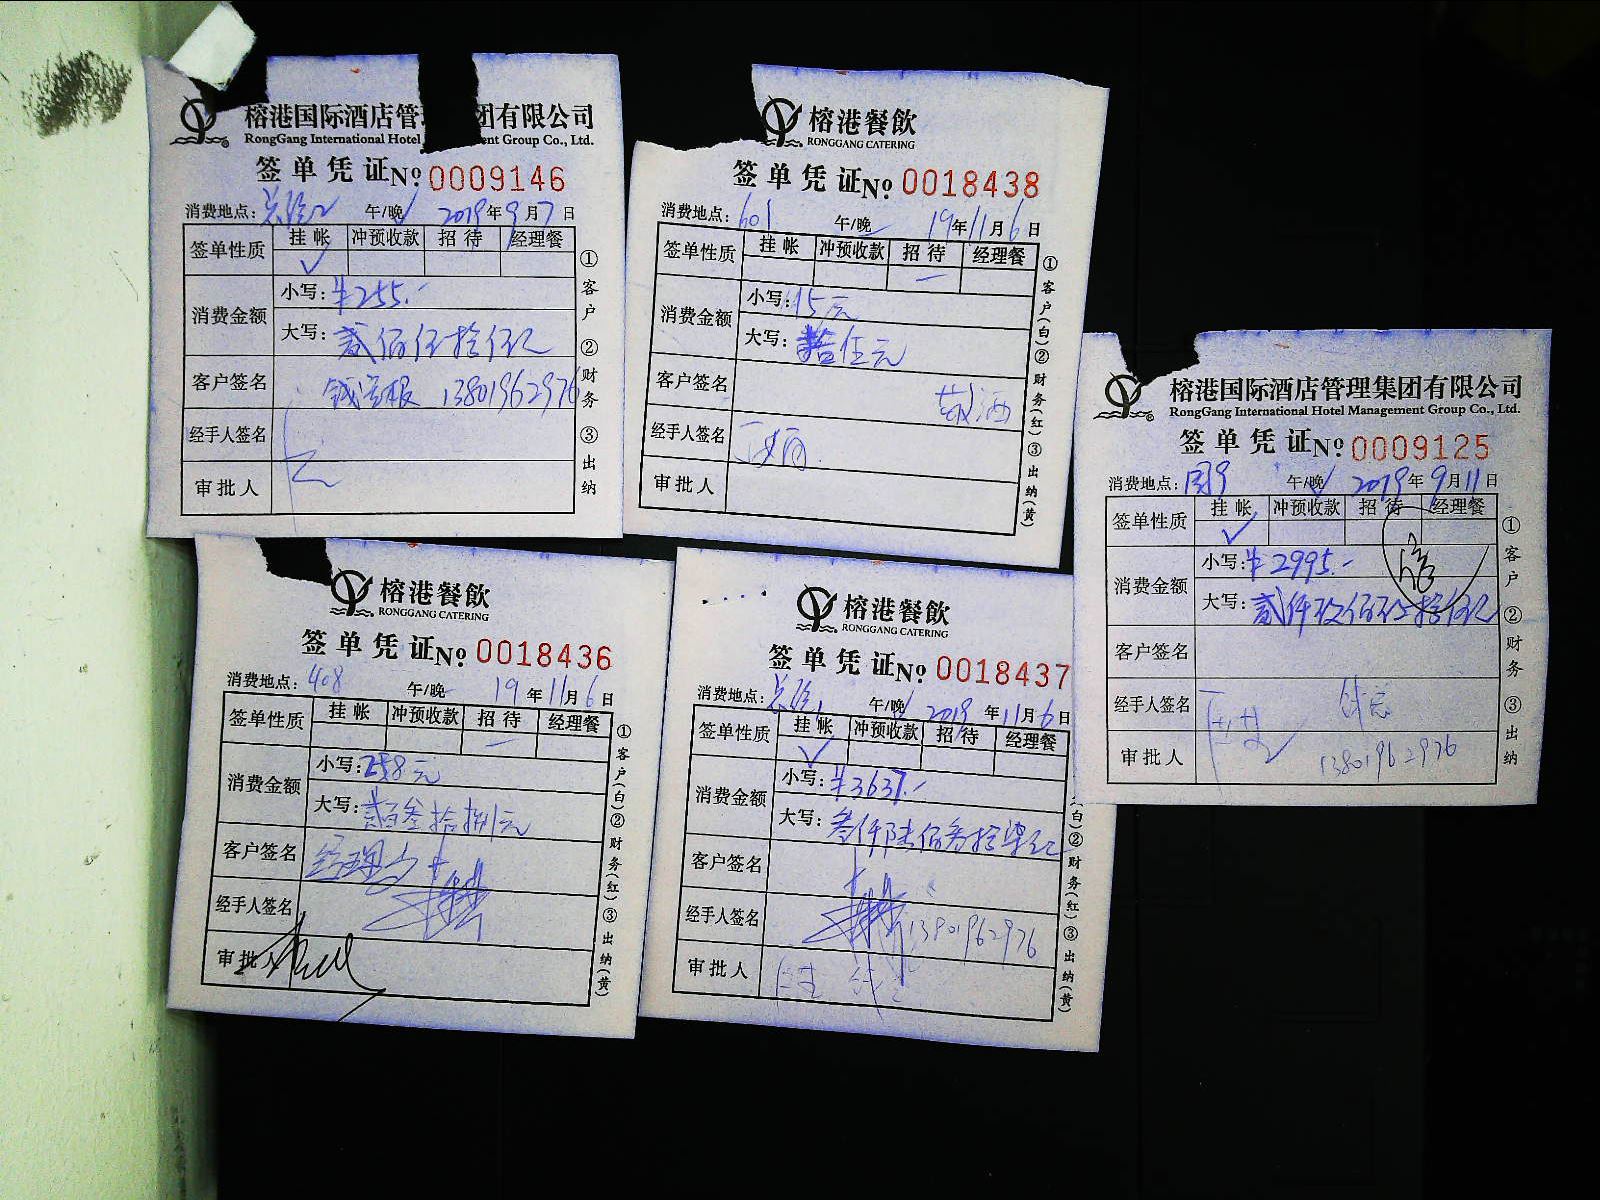 榕港国际酒店管理集团有限公司
RongGang International Hotel Management Group Co., Ltd.
签单凭证 № 0009146
消费地点: 午/晚 2019年9月7日
签单性质 挂帐 冲预收款 招待 经理餐
✓
消费金额 小写: ¥255.-
大写: 贰佰伍拾伍元
客户签名 13801962976
经手人签名
审批人
①客户 ②财务 ③出纳
榕港餐飲
RONGGANG CATERING
签单凭证 № 0018438
消费地点: 601 午/晚 19年11月6日
签单性质 挂帐 冲预收款 招待 经理餐
消费金额 小写: 15元
大写: 拾伍元
客户签名
经手人签名
审批人
①客户(白) ②财务(红) ③出纳(黄)
榕港国际酒店管理集团有限公司
RongGang International Hotel Management Group Co., Ltd.
签单凭证 № 0009125
消费地点: 午/晚 2019年9月11日
签单性质 挂帐 冲预收款 招待 经理餐
✓
消费金额 小写: ¥2995.-
大写: 贰仟玖佰玖拾伍元
客户签名
经手人签名
审批人 13801962976
①客户 ②财务 ③出纳
榕港餐飲
RONGGANG CATERING
签单凭证 № 0018436
消费地点: 408 午/晚 19年11月6日
签单性质 挂帐 冲预收款 招待 经理餐
消费金额 小写: 238元
大写: 贰百叁拾捌元
客户签名
经手人签名
审批人
①客户(白) ②财务(红) ③出纳(黄)
榕港餐飲
RONGGANG CATERING
签单凭证 № 0018437
消费地点: 午/晚 2019年11月6日
签单性质 挂帐 冲预收款 招待 经理餐
✓
消费金额 小写: ¥3637.-
大写: 叁仟陆佰叁拾柒元
客户签名
经手人签名 13801962976
审批人
白) ②财务(红) ③出纳(黄)